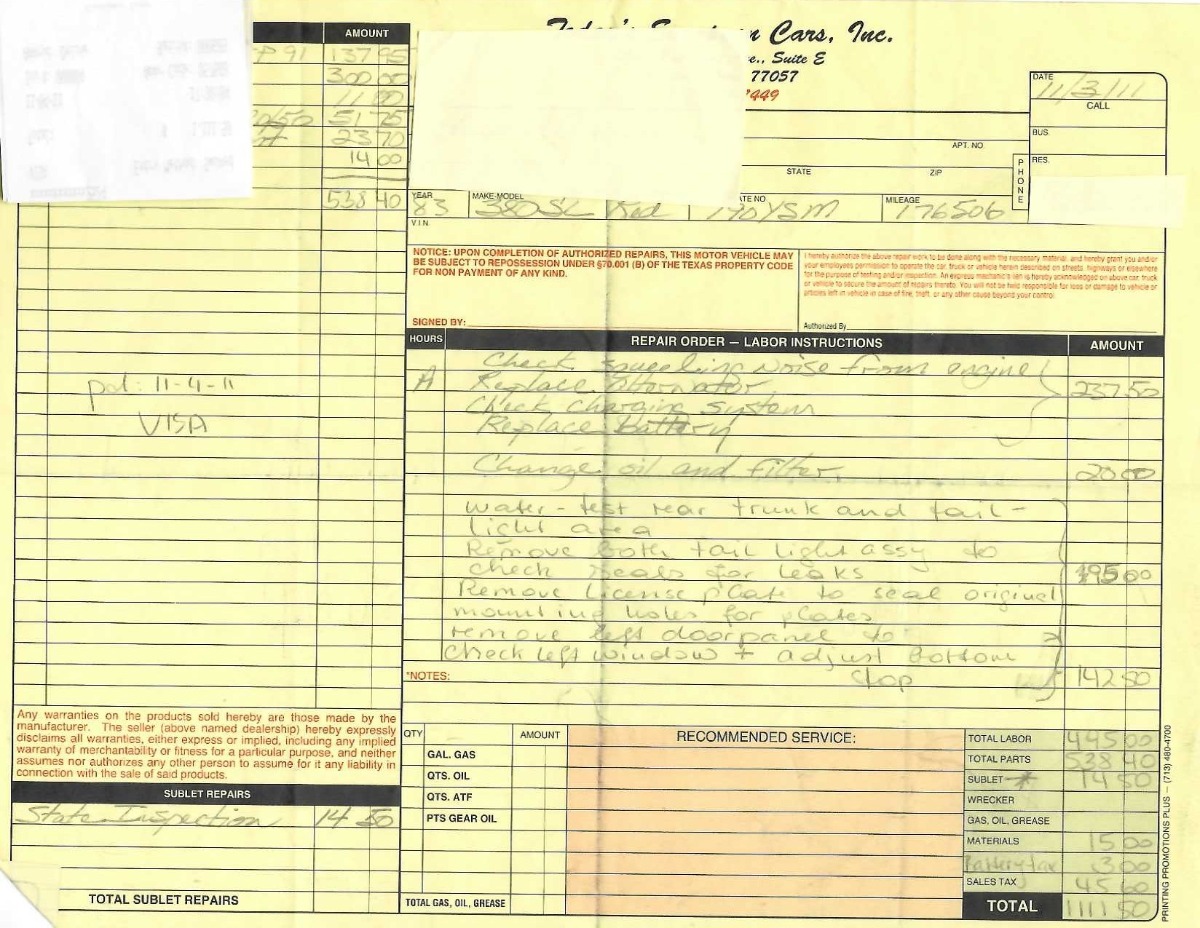 AMOUNT
P 91 137 95
300 00
11 00
51 75
23 70
14 00
538 40
pd: 11-4-11
VISA
Any warranties on the products sold hereby are those made by the
manufacturer. The seller (above named dealership) hereby expressly
disclaims all warranties, either express or implied, including any implied
warranty of merchantability or fitness for a particular purpose, and neither
assumes nor authorizes any other person to assume for it any liability in
connection with the sale of said products.
SUBLET REPAIRS
State Inspection 14 50
TOTAL SUBLET REPAIRS
Cars, Inc.
Suite E
77057
449
DATE
11/3/11
CALL
BUS.
APT. NO
RES.
STATE ZIP
PHONE
YEAR MAKE-MODEL MILEAGE
83 380SL Red 176506
V.I.N.
NOTICE: UPON COMPLETION OF AUTHORIZED REPAIRS, THIS MOTOR VEHICLE MAY
BE SUBJECT TO REPOSSESSION UNDER §70.001 (B) OF THE TEXAS PROPERTY CODE
FOR NON PAYMENT OF ANY KIND.
SIGNED BY:
I hereby authorize the above repair work to be done along with the necessary material, and hereby grant you and/or
your employees permission to operate the car, truck or vehicle herein described on streets, highways or elsewhere
for the purpose of testing and/or inspection. An express mechanic's lien is hereby acknowledged on above car, truck
or vehicle to secure the amount of repairs thereto. You will not be held responsible for loss or damage to vehicle or
articles left in vehicle in case of fire, theft, or any other cause beyond your control.
Authorized By
HOURS REPAIR ORDER — LABOR INSTRUCTIONS AMOUNT
Check squeeling noise from engine
A Replace alternator 237 50
Check charging system
Replace battery
Change oil and filter 20 00
Water-test rear trunk and tail-
light area
Remove both tail light assy to
check seals for leaks 195 00
Remove License plate to seal original
mounting holes for plates
remove left doorpanel to
Check left window + adjust bottom
stop 142 50
*NOTES:
QTY AMOUNT RECOMMENDED SERVICE:
GAL. GAS
QTS. OIL
QTS. ATF
PTS GEAR OIL
TOTAL GAS, OIL, GREASE
TOTAL LABOR 445 00
TOTAL PARTS 538 40
SUBLET * 14 50
WRECKER
GAS, OIL, GREASE
MATERIALS 15 00
Battery tax 3 00
SALES TAX 45 60
TOTAL 1111 50
PRINTING PROMOTIONS PLUS — (713) 480-4700